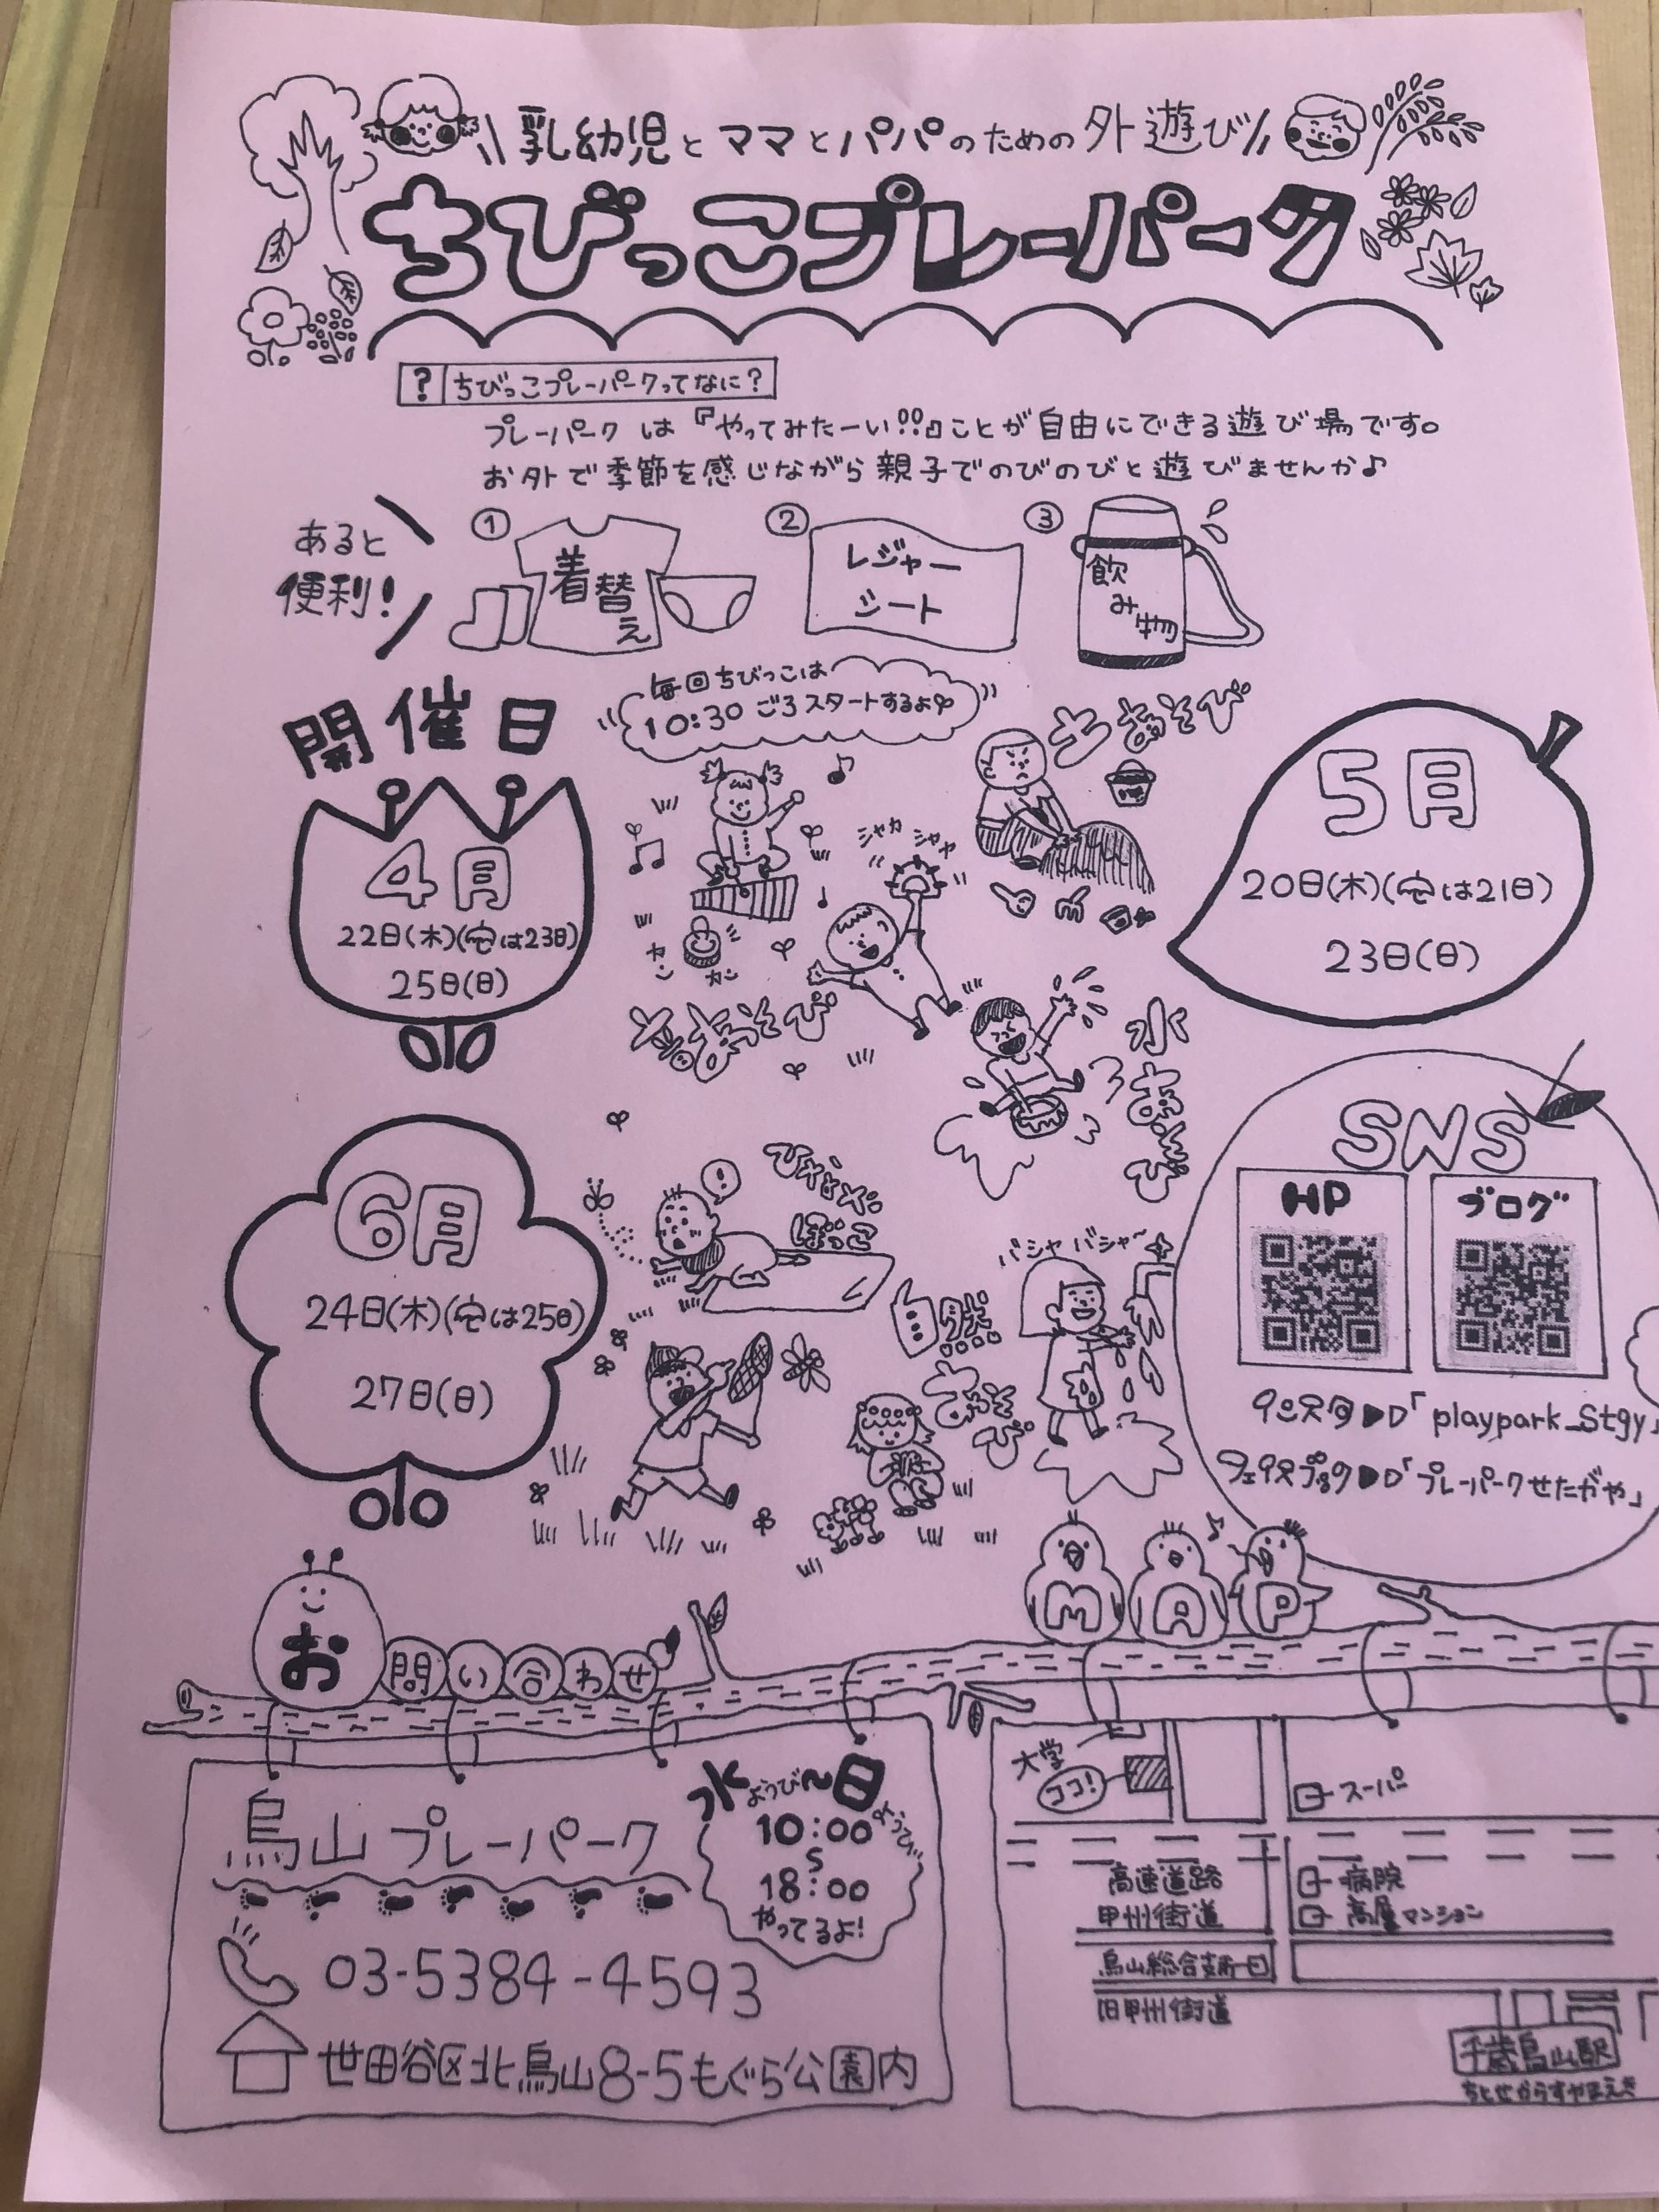 乳幼児とママとパパのための外遊び
ちびっこプレーパーク
? ちびっこプレーパークってなに?
プレーパークは『やってみたーい!!』ことが自由にできる遊び場です。
お外で季節を感じながら親子でのびのびと遊びませんか♪
あると
便利!
① 着替え
② レジャーシート
③ 飲み物
毎回ちびっこは
10:30ごろスタートするよ
開催日
4月
22日(木)(
は23日)
25日(日)
5月
20日(木)(
は21日)
23日(日)
土あそび
シャカシャカ
カン
カン
音あそび
水あそび
6月
24日(木)(
は25日)
27日(日)
ひなたぼっこ
バシャバシャ〜
自然あそび
SNS
HP
ブログ
インスタ▶▷「playpark_stgy」
フェイスブック▶▷「プレーパークせたがや」
お問い合わせ
MAP
烏山プレーパーク
水ようび〜日ようび
10:00
〜
18:00
やってるよ!
03-5384-4593
世田谷区北烏山8-5もぐら公園内
大学
ココ!
スーパー
高速道路
甲州街道
病院
高層マンション
烏山総合支所
旧甲州街道
千歳烏山駅
ちとせからすやまえき